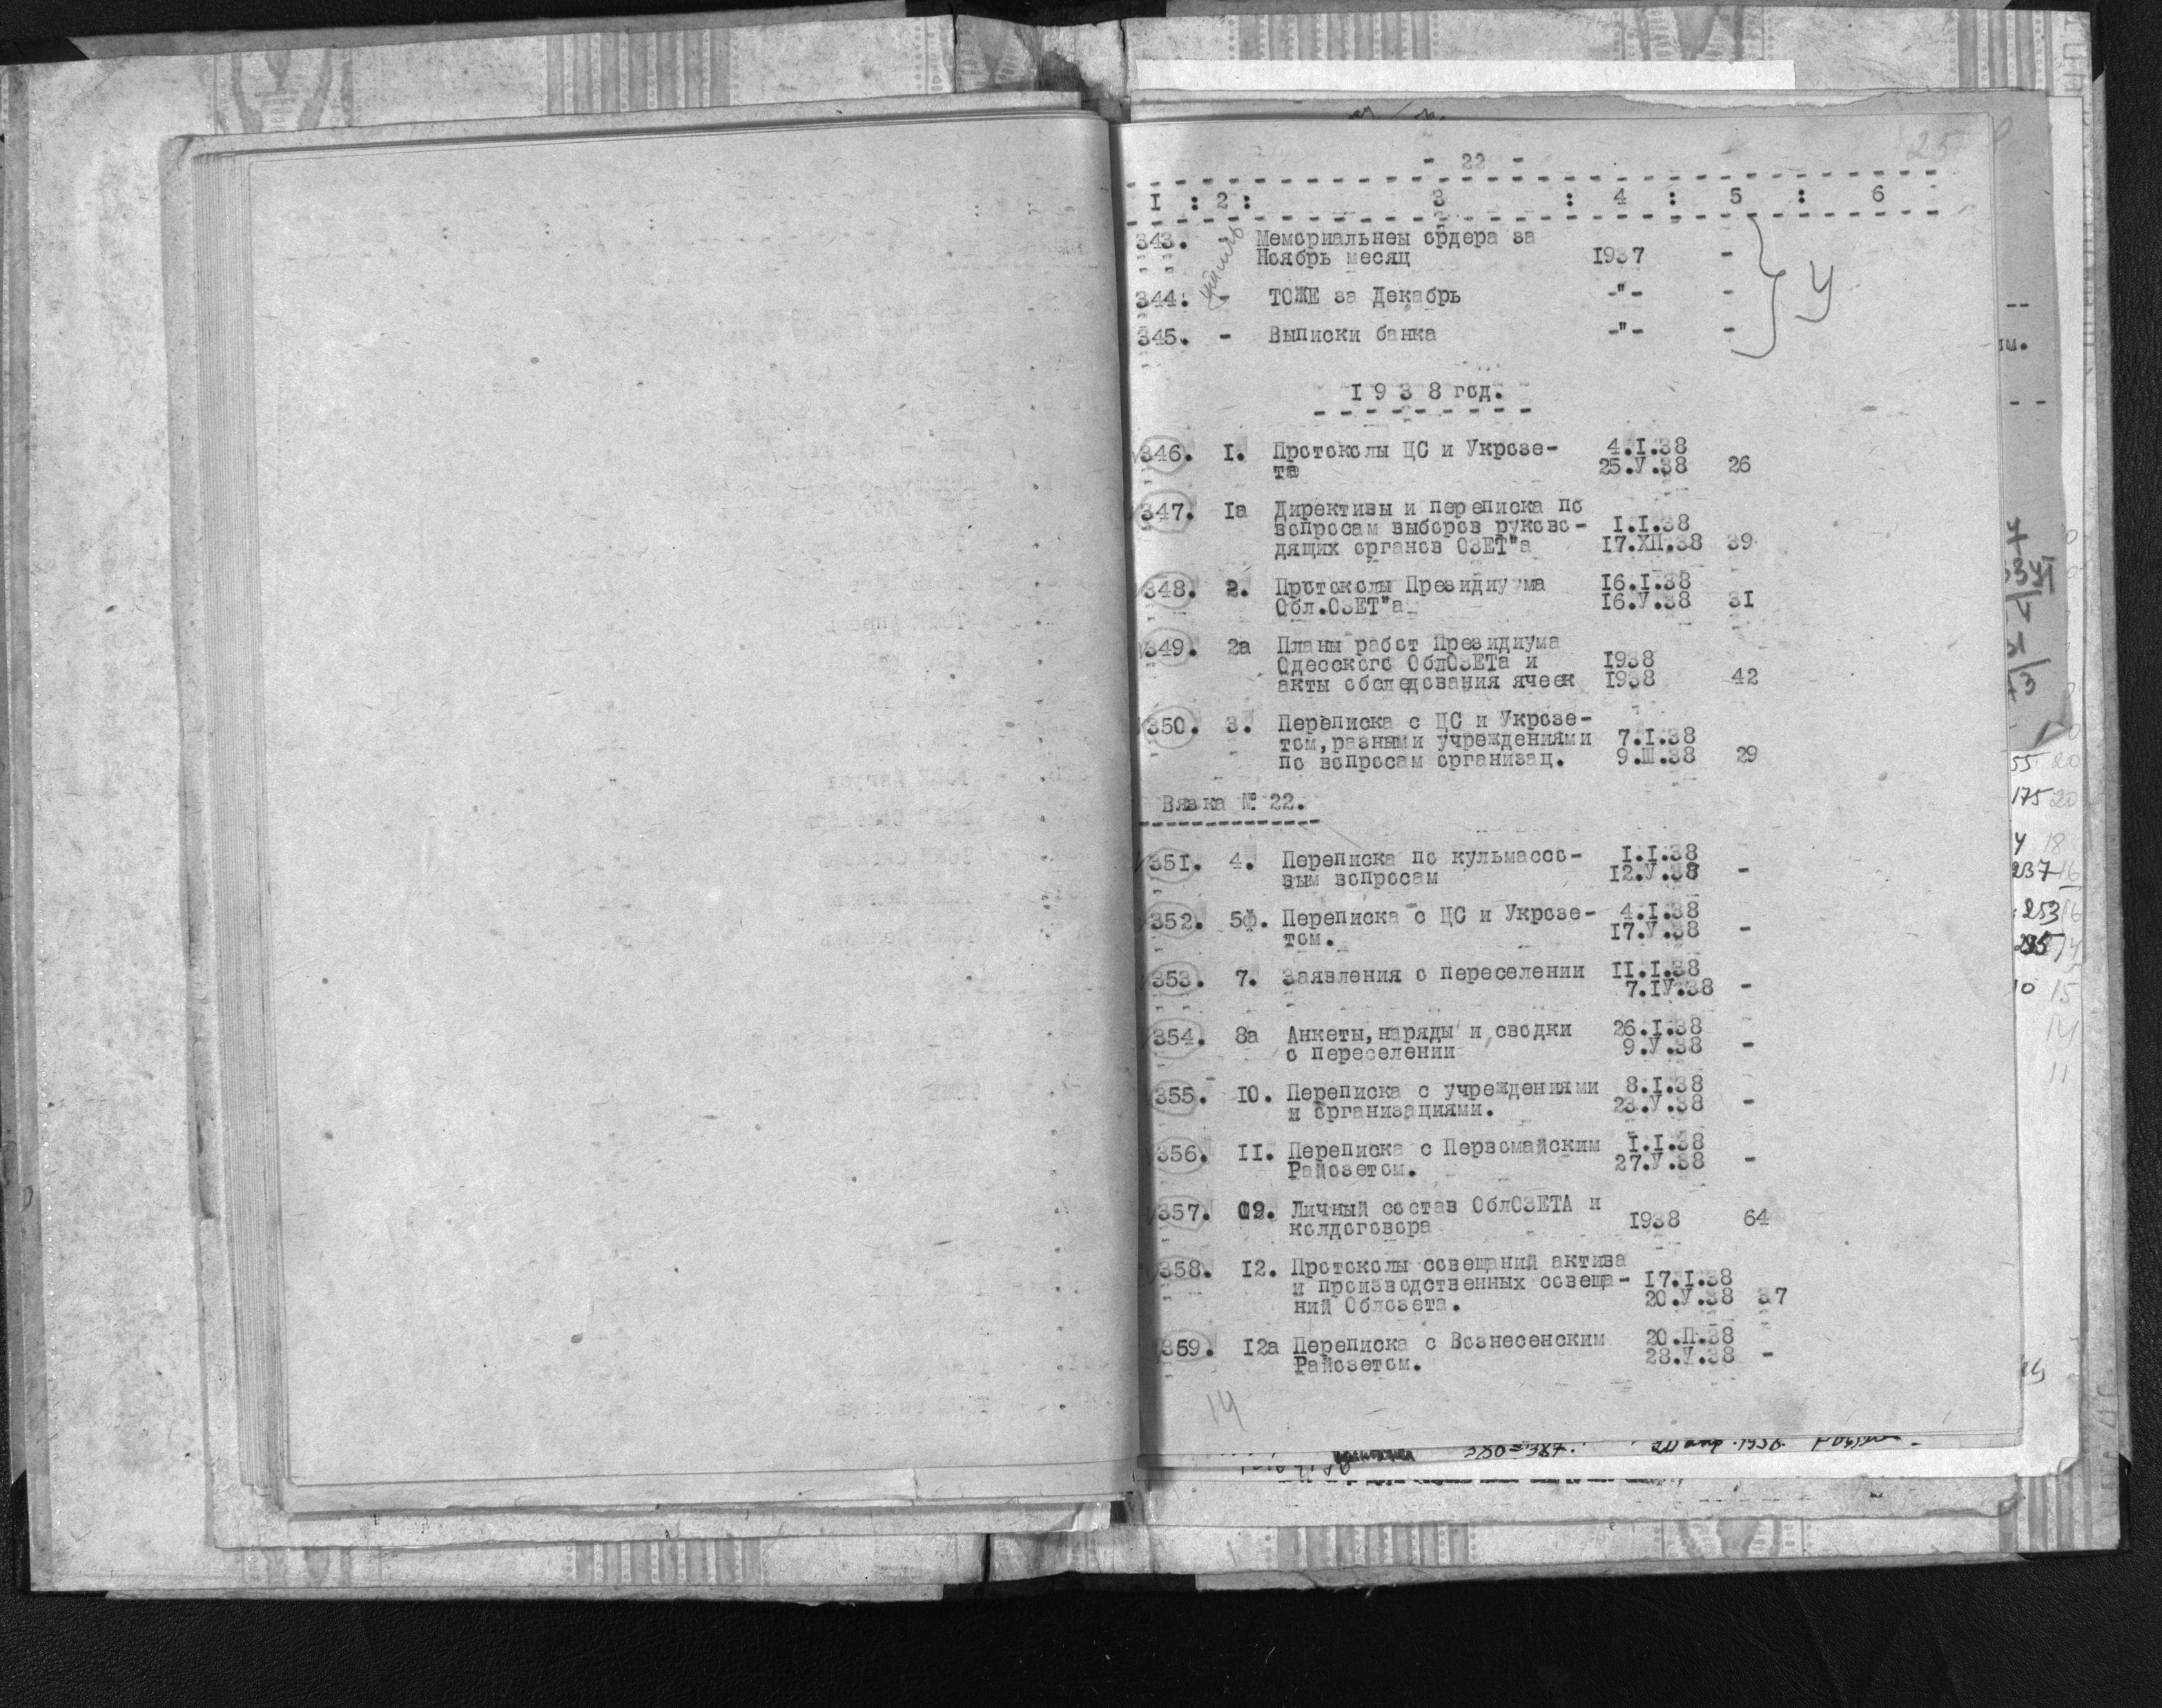 25
- 22 -
I : 2 : 3 : 4 : 5 : 6
343. - Мемориальнеы ордера за
Ноябрь месяц 1937 -
344. - ТОЖЕ за Декабрь -"- -
У
345. - Выписки банка -"- -
I 9 3 8 год.
346. I. Протоколы ЦС и Укрозе- 4.I.38
та 25.У.38 26
347. Iа Директивы и переписка по
вопросам выборов руково- I.I.38
дящих органов ОЗЕТ"а 17.ХП.38 39
348. 2. Протоколы Президиуума 16.I.38
Обл.ОЗЕТ"а 16.У.38 31
349. 2а Планы работ Президиума
Одесского ОблОЗЕТа и 1938
акты обследования ячеек 1938 42
350. 3. Переписка с ЦС и Укрозе-
том,разными учреждениями 7.I.38
по вопросам организац. 9.Ш.38 29
Вязка № 22.
351. 4. Переписка по кульмассо- I.I.38
вым вопросам 12.У.38 -
352. 5ф. Переписка с ЦС и Укрозе- 4.I.38
том. 17.У.38 -
353. 7. Заявления о переселении II.I.38
7.IУ.38 -
354. 8а Анкеты,наряды и сводки 26.I.38
о переселении 9.У.38 -
355. 10. Переписка с учреждениями 8.I.38
и организациями. 23.У.38 -
356. II. Переписка с Первомайским I.I.38
Райозетом. 27.У.38 -
357. 09. Личный состав ОблОЗЕТА и
колдоговора 1938 64
358. 12. Протоколы совещаний актива
и производственных совеща- 17.I.38
ний Облозета. 20.У.38 37
359. 12а Переписка с Вознесенским 20.П.38
Райозетом. 28.У.38 -
14
55 20
175 20
4 18
237 16
253 16
10 15
14
11